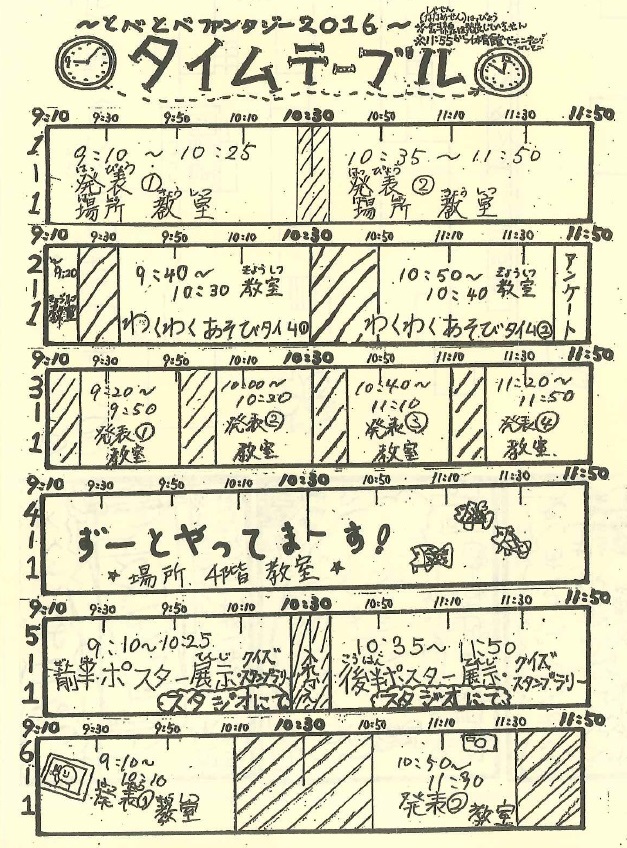 ～とべとべファンタジー2016～
しゃせん
(ななめせん)
※11:55から体育館で
タイムテーブル
9:10 9:30 9:50 10:10 10:30 10:50 11:10 11:30 11:50
1-1
9:10～10:25
はっぴょう
発表①
ばしょ きょうしつ
場所 教室
10:35～11:50
はっぴょう
発表②
ばしょ きょうしつ
場所 教室
9:10 9:30 9:50 10:10 10:30 10:50 11:10 11:30 11:50
2-1
～9:20
きょうしつ
教室
9:40～
10:30 きょうしつ
教室
わくわくあそびタイム①
10:50～
10:40 きょうしつ
教室
わくわくあそびタイム②
アンケート
9:10 9:30 9:50 10:10 10:30 10:50 11:10 11:30 11:50
3-1
9:20～
9:50
発表①
教室
10:00～
10:30
発表②
教室
10:40～
11:10
発表③
教室
11:20～
11:50
発表④
教室
9:10 9:30 9:50 10:10 10:30 10:50 11:10 11:30 11:50
4-1
ずーとやってまーす!
★場所 4階 教室★
9:10 9:30 9:50 10:10 10:30 10:50 11:10 11:30 11:50
5-1
9:10～10:25
前半・ポスター展示・クイズスタンプラリー
てんじ
スタジオにて
10:35～11:50
こうはん てんじ
後半ポスター展示・クイズスタンプラリー
スタジオにて
9:10 9:30 9:50 10:10 10:30 10:50 11:10 11:30 11:50
6-1
9:10～
10:10
発表① 教室
10:50～
11:30
発表② 教室